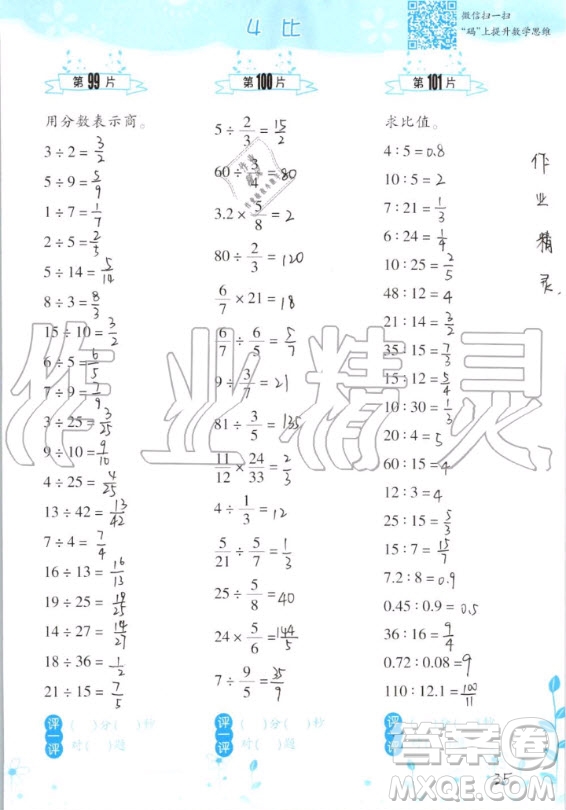 4 比
微信扫一扫
“码”上提升数学思维
第99片
用分数表示商。
3÷2=3/2
5÷9=5/9
1÷7=1/7
2÷5=2/5
5÷14=5/14
8÷3=8/3
15÷10=3/2
6÷5=6/5
7÷9=7/9
3÷25=3/25
9÷10=9/10
4÷25=4/25
13÷42=13/42
7÷4=7/4
16÷13=16/13
19÷25=19/25
14÷27=14/27
18÷36=1/2
21÷15=7/5
评一评
( )分( )秒
对( )题
第100片
5÷2/3=15/2
60÷3/4=80
3.2×5/8=2
80÷2/3=120
6/7×21=18
6/7÷6/5=5/7
9÷3/7=21
81÷3/5=135
11/12×24/33=2/3
4÷1/3=12
5/21÷5/7=1/3
25÷5/8=40
24×5/6=144/5
7÷9/5=35/9
评一评
( )分( )秒
对( )题
第101片
求比值。
4:5=0.8
10:5=2
7:21=1/3
6:24=1/4
10:25=2/5
48:12=4
21:14=3/2
35:15=7/3
15:12=5/4
10:30=1/3
20:4=5
60:15=4
12:3=4
25:15=5/3
15:7=15/7
7.2:8=0.9
0.45:0.9=0.5
36:16=9/4
0.72:0.08=9
110:12.1=100/11
评一评
作业精灵
作业精灵
答案卷
MXQE.COM
35